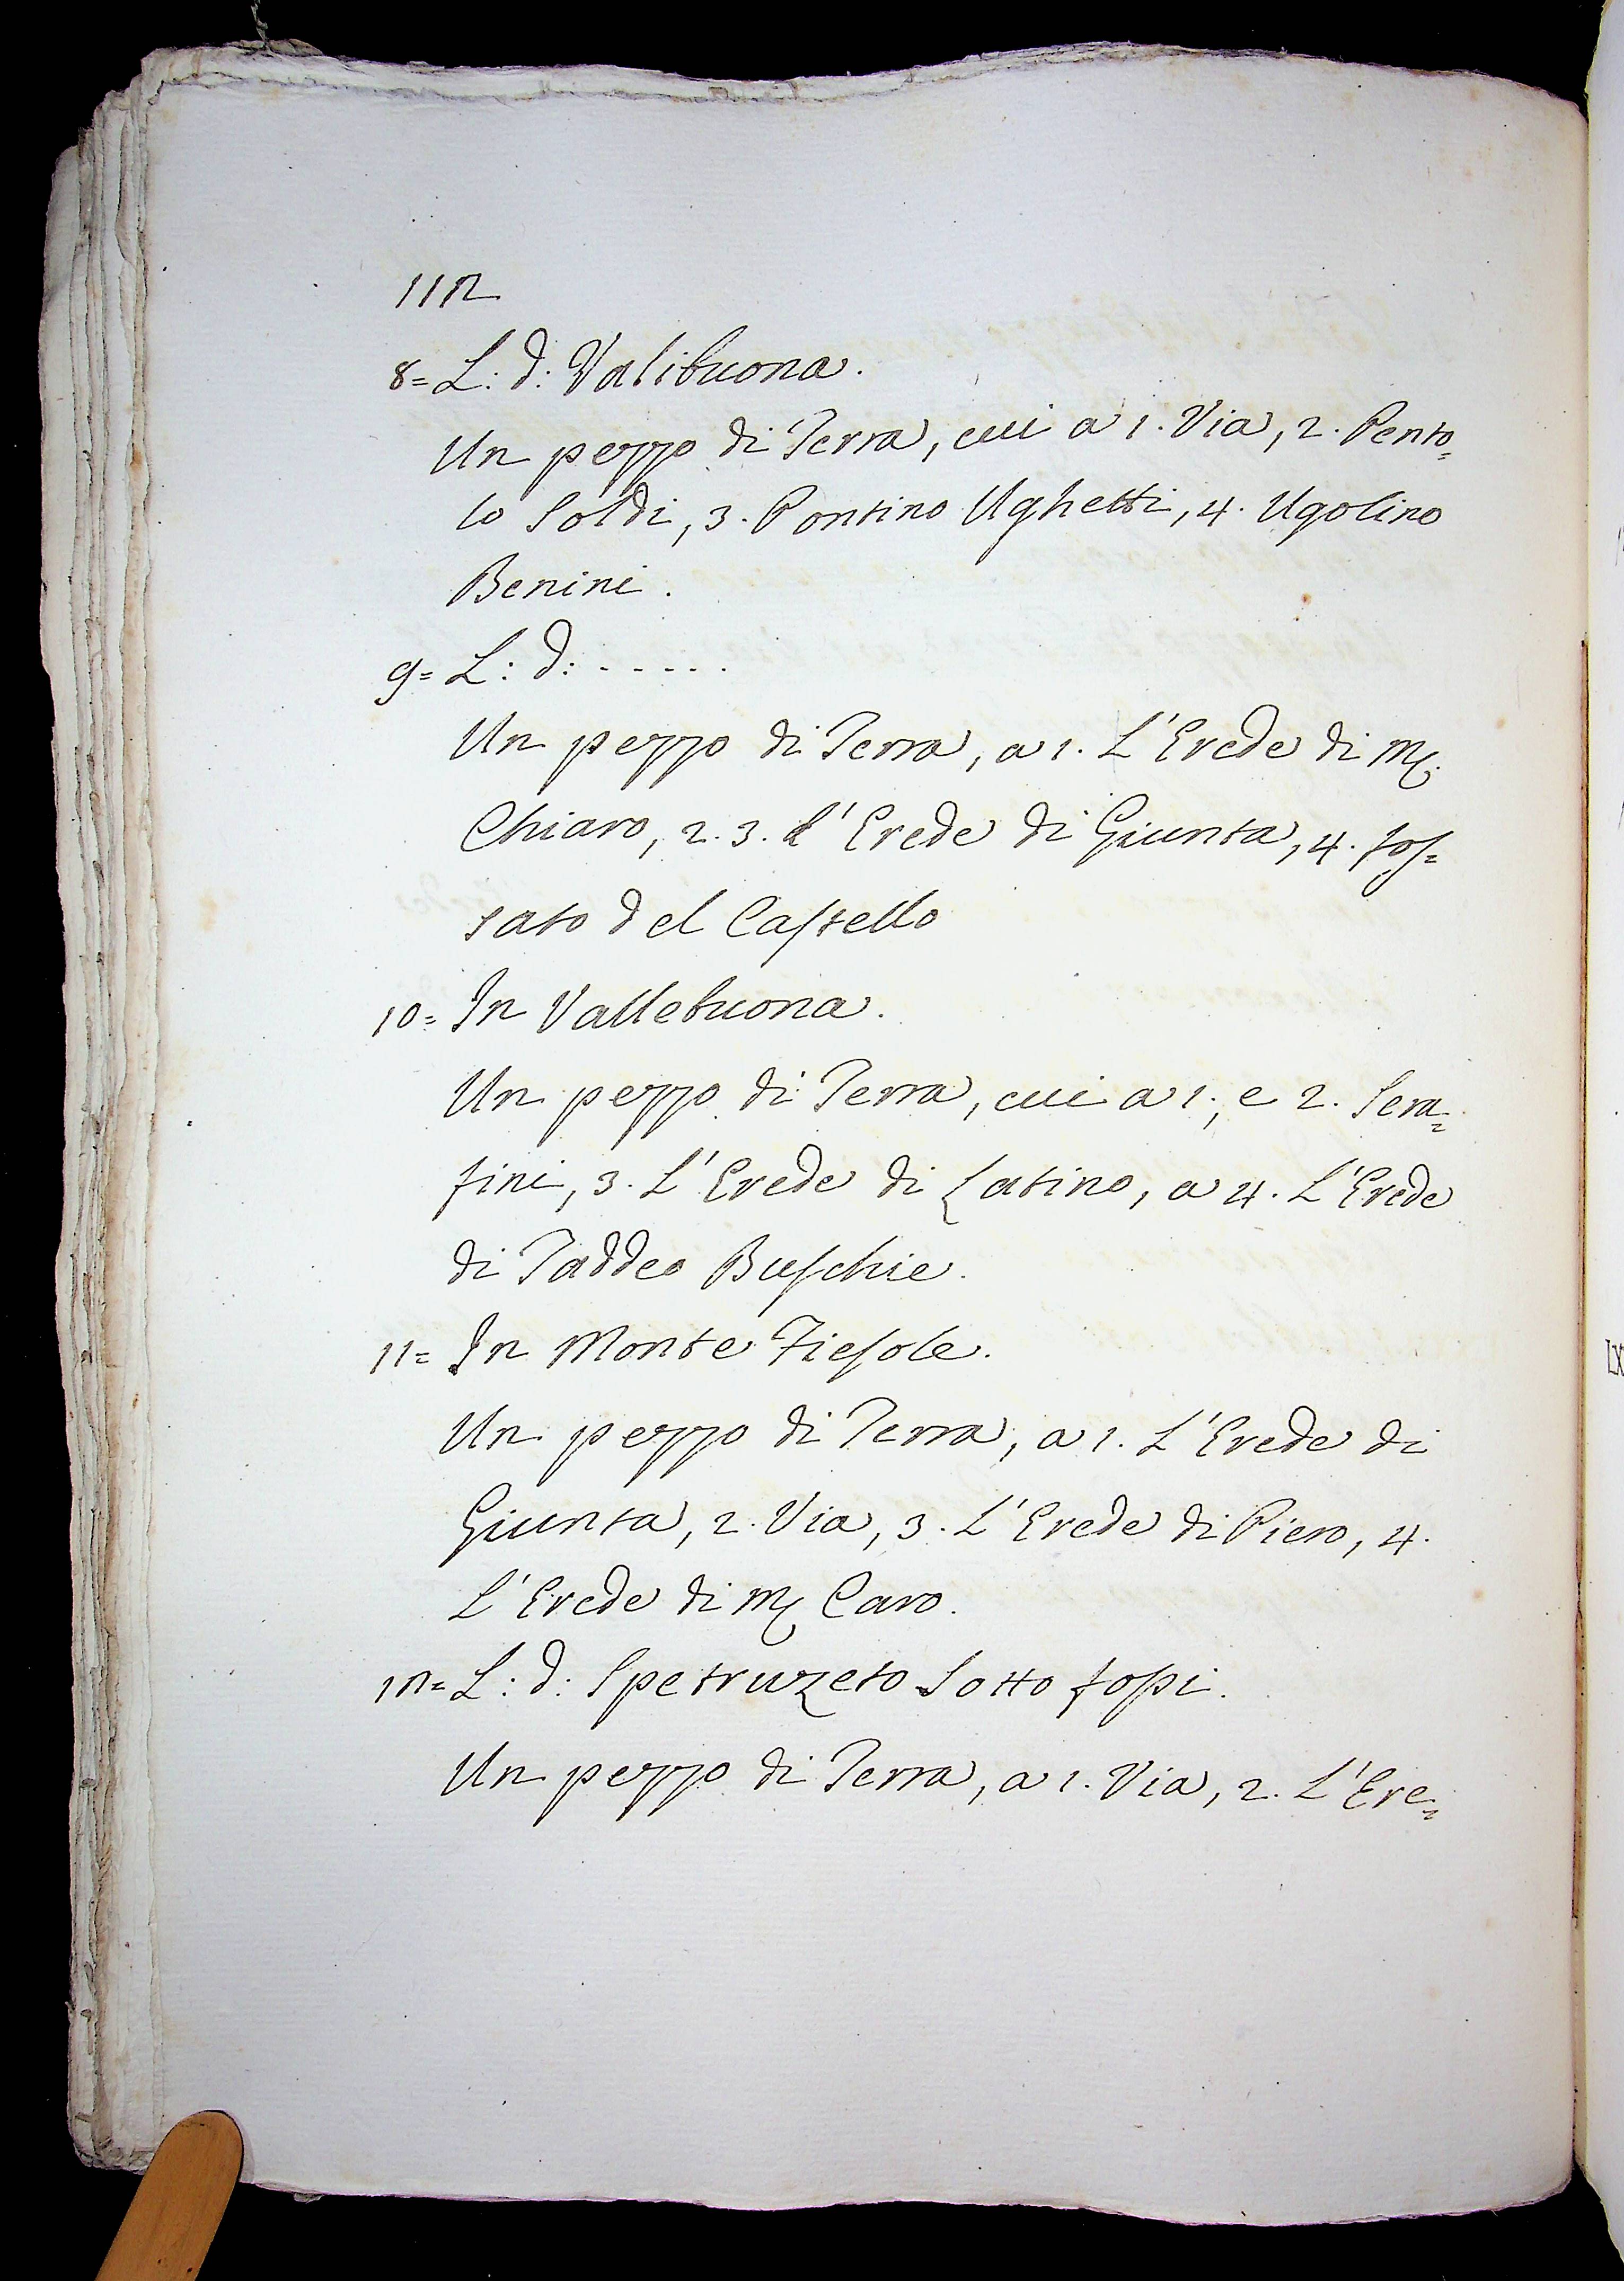 112
8= L: d: Valibuona.
Un pezzo di Terra, cui a 1. Via, 2. Pento=
lo Soldi, 3. Pontino Ughetti, 4. Ugolino
Benini.
9= L: d: - - - - -
Un pezzo di Terra, a 1. L'Erede di M.
Chiaro, 2. 3. l'Erede di Giunta, 4. fos=
sato del Castello
10= In Vallebuona.
Un pezzo di Terra, cui a 1., e 2. Sera=
fini, 3. L'Erede di Latino, a 4. L'Erede
di Taddeo Buschie.
11= In Monte Fiesole.
Un pezzo di Terra, a 1. L'Erede di
Giunta, 2. Via, 3. L'Erede di Piero, 4.
L'Erede di M. Caro.
12= L: d: Spetruzeto Sotto fossi.
Un pezzo di Terra, a 1. Via, 2. L'Ere=
LX